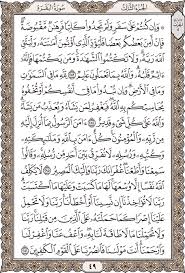 الجزء الثالث
سورة البقرة
۞ وَإِن كُنتُمْ عَلَىٰ سَفَرٍ وَلَمْ تَجِدُوا۟ كَاتِبًا فَرِهَـٰنٌ مَّقْبُوضَةٌ ۖ
فَإِنْ أَمِنَ بَعْضُكُم بَعْضًا فَلْيُؤَدِّ ٱلَّذِى ٱؤْتُمِنَ أَمَـٰنَتَهُۥ وَلْيَتَّقِ
ٱللَّهَ رَبَّهُۥ ۗ وَلَا تَكْتُمُوا۟ ٱلشَّهَـٰدَةَ ۚ وَمَن يَكْتُمْهَا فَإِنَّهُۥٓ ءَاثِمٌ
قَلْبُهُۥ ۗ وَٱللَّهُ بِمَا تَعْمَلُونَ عَلِيمٌ ٢٨٣ لِّلَّهِ مَا فِى ٱلسَّمَـٰوَٰتِ
وَمَا فِى ٱلْأَرْضِ ۗ وَإِن تُبْدُوا۟ مَا فِىٓ أَنفُسِكُمْ أَوْ تُخْفُوهُ
يُحَاسِبْكُم بِهِ ٱللَّهُ ۖ فَيَغْفِرُ لِمَن يَشَآءُ وَيُعَذِّبُ مَن يَشَآءُ ۗ
وَٱللَّهُ عَلَىٰ كُلِّ شَىْءٍ قَدِيرٌ ٢٨٤ ءَامَنَ ٱلرَّسُولُ بِمَآ أُنزِلَ
إِلَيْهِ مِن رَّبِّهِۦ وَٱلْمُؤْمِنُونَ ۚ كُلٌّ ءَامَنَ بِٱللَّهِ وَمَلَـٰٓئِكَتِهِۦ
وَكُتُبِهِۦ وَرُسُلِهِۦ لَا نُفَرِّقُ بَيْنَ أَحَدٍ مِّن رُّسُلِهِۦ ۚ وَقَالُوا۟
سَمِعْنَا وَأَطَعْنَا ۖ غُفْرَانَكَ رَبَّنَا وَإِلَيْكَ ٱلْمَصِيرُ ٢٨٥ لَا يُكَلِّفُ
ٱللَّهُ نَفْسًا إِلَّا وُسْعَهَا ۚ لَهَا مَا كَسَبَتْ وَعَلَيْهَا مَا ٱكْتَسَبَتْ ۗ
رَبَّنَا لَا تُؤَاخِذْنَآ إِن نَّسِينَآ أَوْ أَخْطَأْنَا ۚ رَبَّنَا وَلَا تَحْمِلْ
عَلَيْنَآ إِصْرًا كَمَا حَمَلْتَهُۥ عَلَى ٱلَّذِينَ مِن قَبْلِنَا ۚ رَبَّنَا
وَلَا تُحَمِّلْنَا مَا لَا طَاقَةَ لَنَا بِهِۦ ۖ وَٱعْفُ عَنَّا وَٱغْفِرْ لَنَا
وَٱرْحَمْنَآ ۚ أَنتَ مَوْلَىٰنَا فَٱنصُرْنَا عَلَى ٱلْقَوْمِ ٱلْكَـٰفِرِينَ ٢٨٦
٤٩